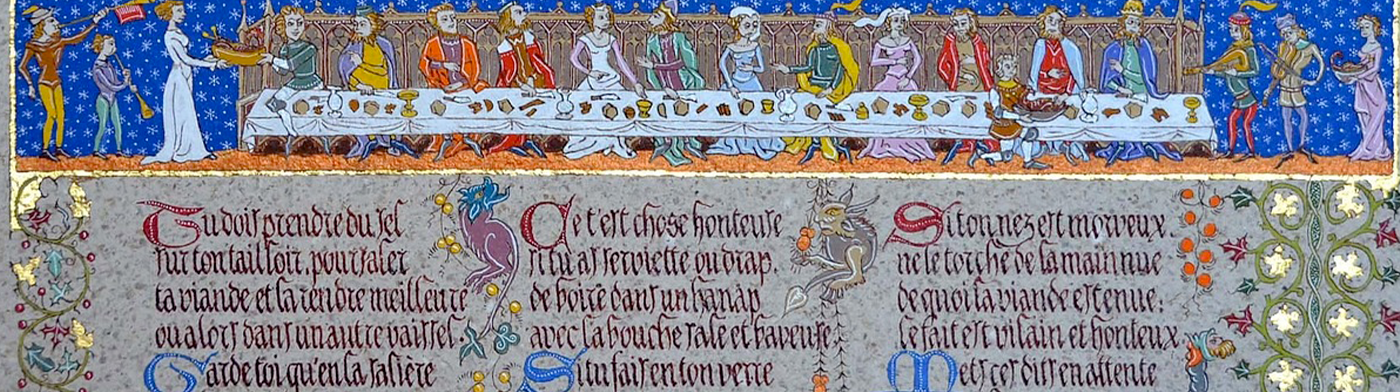 Tu dois prendre du sel
sur ton tailloir, pour saler
ta viande et la rendre meilleure
ou alors dans un autre vaissel.
Garde toi qu'en la salière
Ce t'est chose honteuse
si tu as serviette ou drap,
de boire dans un hanap
avec la bouche sale et baveuse.
Si tu fais en ton verre
Si ton nez est morveux,
ne le torche de la main nue
de quoi ta viande est tenue.
le fait est vilain et honteux
Mets ces dits en attente